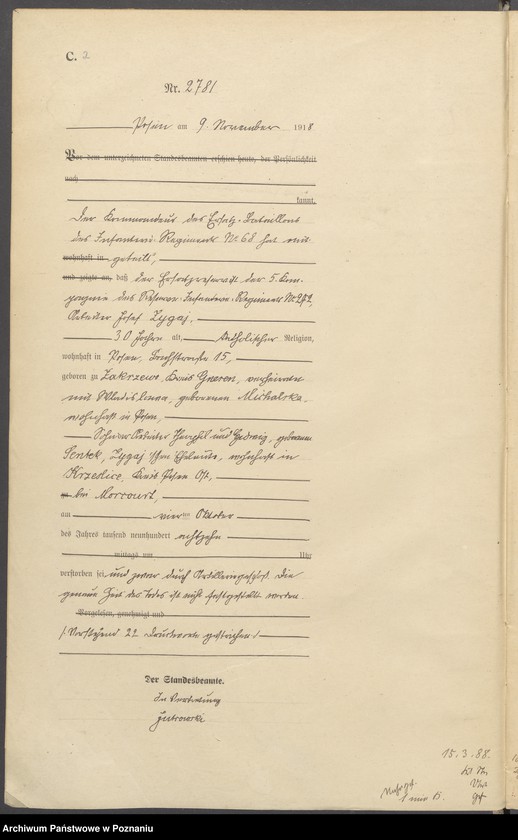 C. 2
Nr. 2781
Posen am 9. November 1918
Vor dem unterzeichneten Standesbeamten erschien heute, der Persönlichkeit
nach
kannt,
Der Kommandeur des Ersatz-Bataillons
des Infanterie-Regiments Nr. 68 hat mit-
wohnhaft in geteilt,
und zeigte an, daß der Ersatzreservist der 5. Kom-
pagnie des Reserve-Infanterie-Regiments Nr.
Arbeiter Josef Zygaj,
30 Jahre alt, katholischer Religion,
wohnhaft in Posen, 15,
geboren zu Zakrzewo, Kreis Gnesen, verheiratet
mit Wladislawa, geborenen Michalska,
wohnhaft in Posen,
Sohn der Arbeiter und Hedwig, geborenen
Sentek, Zygaj'schen Eheleute, wohnhaft in
Krzeslice, Kreis Posen Ost,
bei Morcourt,
am vierten Oktober
des Jahres tausend neunhundert achtzehn
mittags um Uhr
verstorben sei, und zwar durch Artilleriegeschoß. Die
genaue Zeit des Todes ist nicht festgestellt worden.
Vorgelesen, genehmigt und
/: Vorstehend 22 Druckworte gestrichen :/
Der Standesbeamte.
In Vertretung
15.3.88.
Archiwum Państwowe w Poznaniu